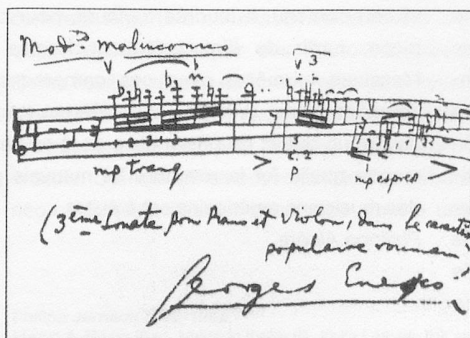 Modto malinconico
3
mp tranq
mp espress
(3ème Sonate pour Piano et Violon, dans le caractère
populaire roumain)
Georges Enesco